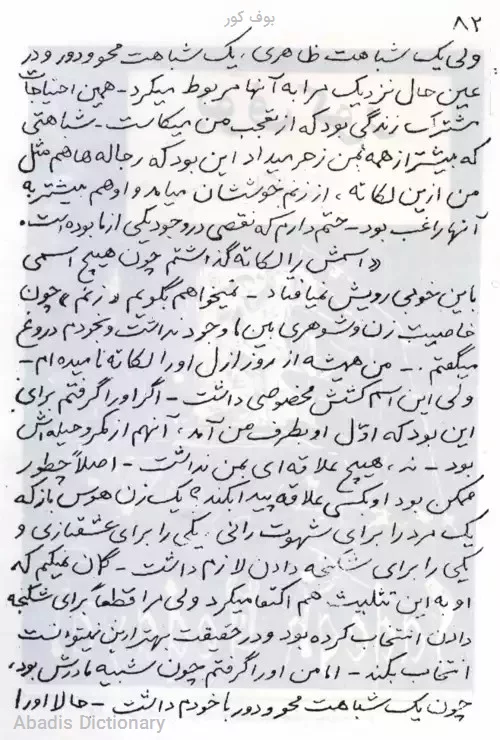 بوف کور
۸۲
ولی یک شباهت ظاهری، یک شباهت محو و دور و در
عین حال نزدیک مرا به آنها مربوط میکرد - همین احتیاجات
مشترک زندگی بود که از تعجب من میکاست - شباهتی
که بیشتر از همه بمن زجر میداد این بود که رجاله‌ها هم مثل
من ازین لکاته، از زنم خوششان میامد و او هم بیشتر به
آنها راغب بود - حتم دارم که نقصی در وجود یکی از ما بوده است.
«اسمش را لکاته گذاشتم چون هیچ اسمی
باین خوبی رویش نمیافتاد - نمیخواهم بگویم «زنم» چون
خاصیت زن و شوهری بین ما وجود نداشت و بخودم دروغ
میگفتم .- من همیشه از روز ازل او را لکاته نامیده‌ام -
ولی این اسم کشش مخصوصی داشت - اگر او را گرفتم برای
این بود که اول او بطرف من آمد، آنهم از مکر و حیله‌اش
بود - نه، هیچ علاقه‌ای بمن نداشت - اصلاً چطور
ممکن بود او بکسی علاقه پیدا بکند؟ یک زن هوس باز که
یک مرد را برای شهوت رانی، یکی را برای عشقبازی و
یکی را برای شکنجه دادن لازم داشت - گمان نمیکنم که
او به این تثلیث هم اکتفا میکرد ولی مرا قطعاً برای شکنجه
دادن انتخاب کرده بود و در حقیقت بهتر ازین نمیتوانست
انتخاب بکند - اما من او را گرفتم چون شبیه مادرش بود،
چون یک شباهت محو و دور با خودم داشت - حالا او را
Abadis Dictionary